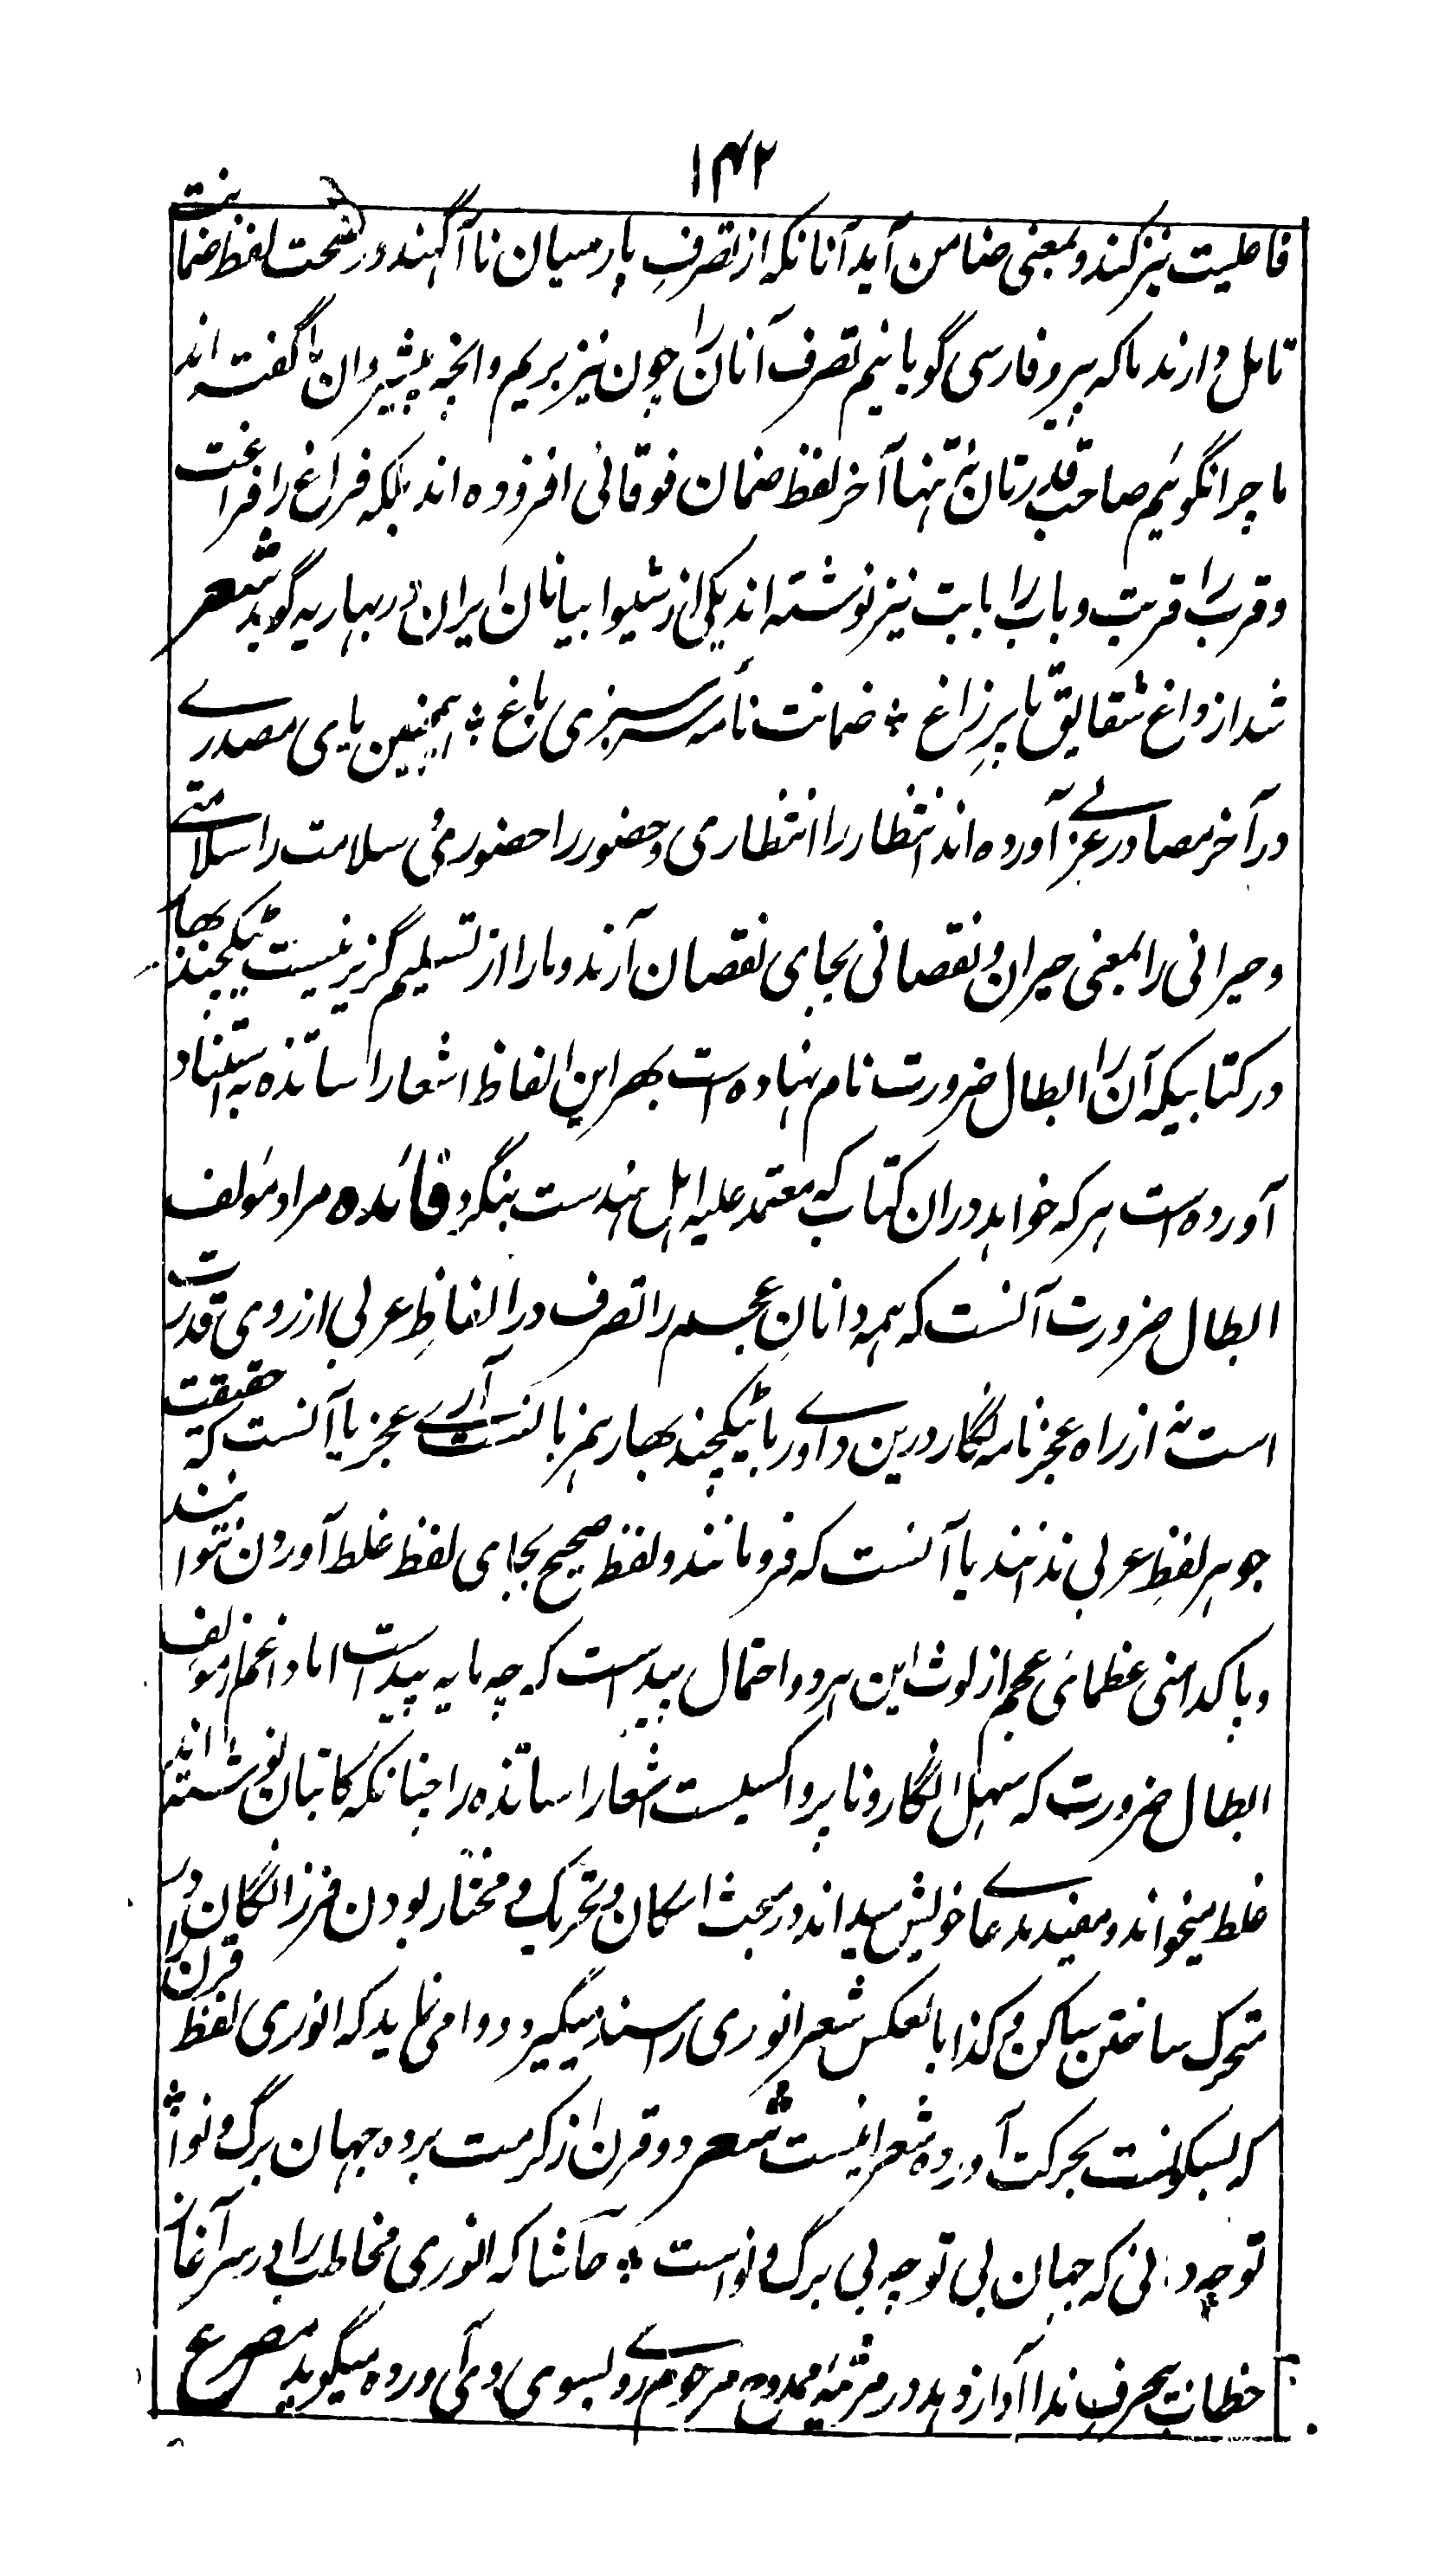 ۱۴۲
فاعلیت نیز کند و بمعنی ضامن آید آنانکه از تصرفِ پارسیان ناآگهند در صحت لفظ ضمانت
تامل دارند ما که پیرو فارسی گویانیم تصرف آنان را چون نپذیریم و انچه پیشیروان ما گفته اند
ما چرا نگوئیم صاحب قدرتان نه تنها آخر لفظ ضمان فوقانی افزوده اند بلکه فراغ را فراغت
و قرب را قربت و باب را بابت نیز نوشته اند یکی از شیوا بیانان ایران در بهاریه گوید شعر
شد از داغ شقایق تا پرِ زاغ ٭ ضمانت نامهٔ سرسبزی باغ ٭ همچنین یای مصدرے
در آخر مصادر عربی آورده اند انتظار را انتظاری و حضور را حضوری سلامت را سلامتے
و حیرانی را بمعنی حیران و نقصانی بجای نقصان آرند و ما را از تسلیم گزیر نیست ٹیکچند بهار
در کتابیکه آن را ابطال ضرورت نام نهاده است بهر این الفاظ اشعار اساتذه به استناد
آورده است هر که خواهد دران کتاب که معتمد علیه اهل هندست بنگرد فائده مراد مؤلف
ابطال ضرورت آنست که همه دانانِ عجم را تصرف در الفاظِ عربی از روی قدرت
است نه از راه عجز نامه نگار درین داوری با ٹیکچند بهار همزبانست آرے عجز یا آنست که حقیقت
جوهر لفظِ عربی ندانند یا آنست که فرومانند و لفظ صحیح بجای لفظ غلط آوردن نتوانند
و پاکدامنی عظمای عجم از لوث این هر دو احتمال پیداست که چه مایه پیداست اما داغم از مؤلف
ابطال ضرورت که سهل انگار و ناپرواکسیست اشعار اساتذه را چنانکه کاتبان نوشته اند
غلط میخواند و مفید مدعاے خویش میداند در بحث اسکان و تحریک و مختار بودن فرزانگان در
متحرک ساختن ساکن و کذا بالعکس شعر انوری را سند میگیرد و وامی نماید که انوری لفظ قرن را
که بسکونست بحرکت آورده شعر اینست شعر دو قرن از کرمت برده جهان برگ و نوا ٭
تو چه دانی که جهان بی تو چه بی برگ و نواست ٭ حاشا که انوری مخاطب را در سرآغاز
خطاب بحرفِ ندا آواز دهد در مرثیهٔ ممدوح مرحومے رو بسوی وی آورده میگوید مصرع